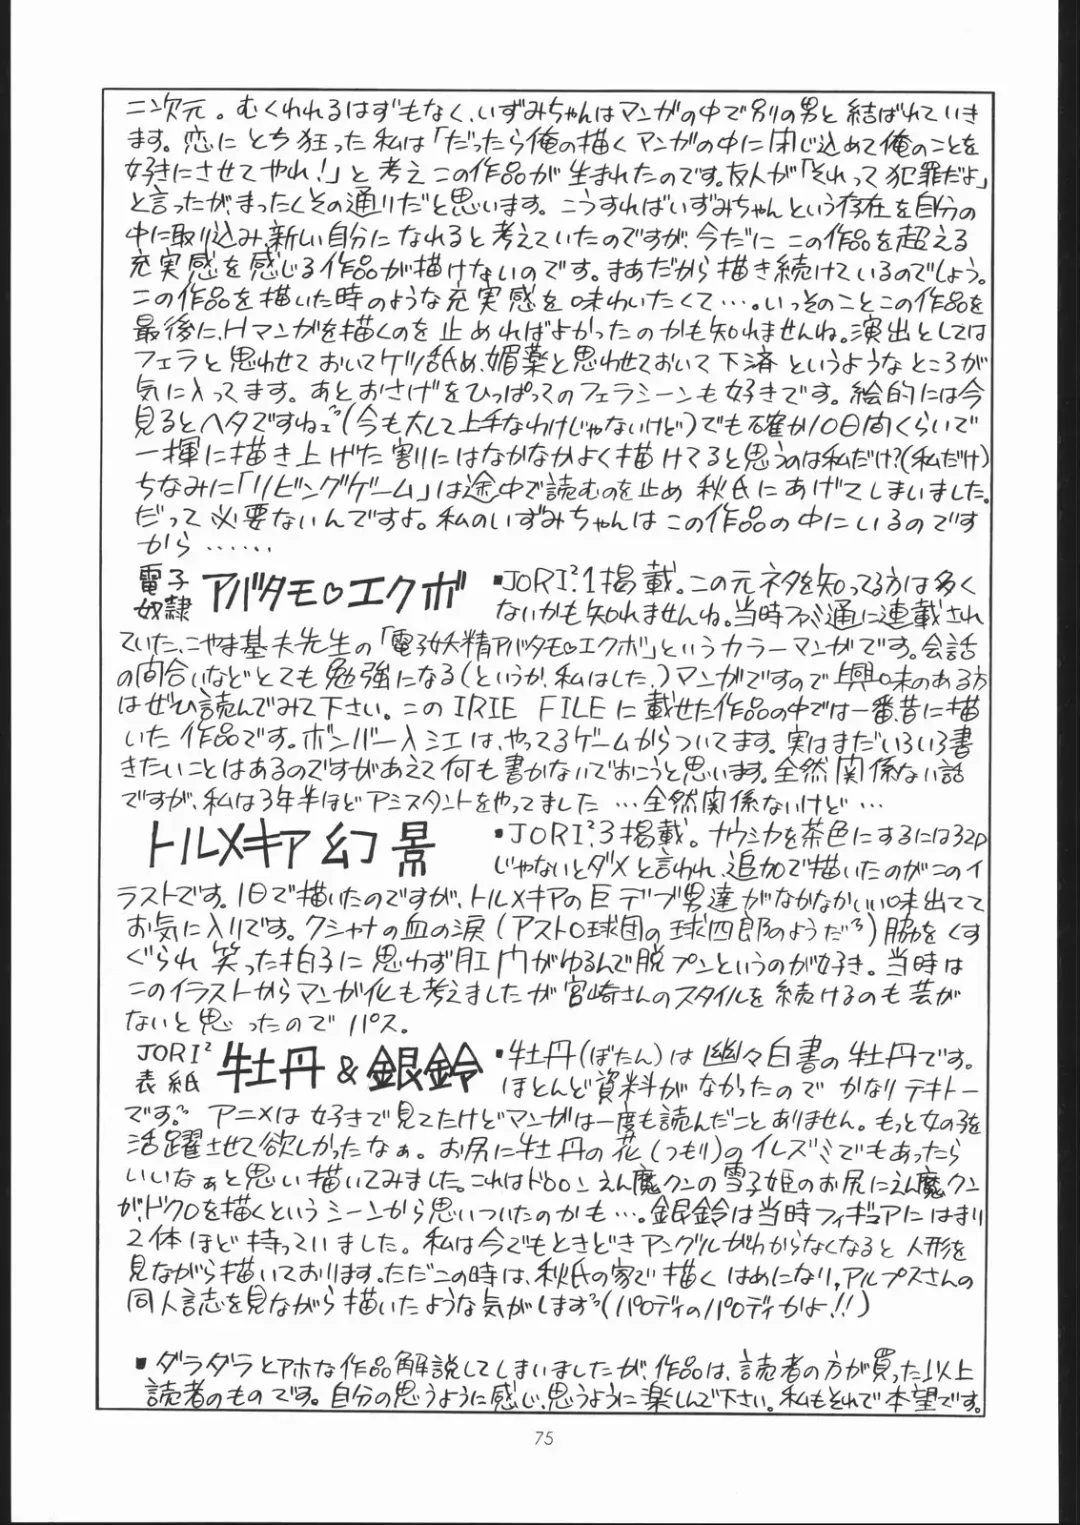 二次元。むくわれるはずもなく、いずみちゃんはマンガの中で別の男と結ばれていき
ます。恋にとち狂った私は「だったら俺の描くマンガの中に閉じ込めて俺のことを
好きにさせてやれ！」と考えこの作品が生まれたのです。友人が「それって犯罪だよ」
と言ったが、まったくその通りだと思います。こうすればいずみちゃんという存在を自分の
中に取り込み、新しい自分になれると考えていたのですが、今だにこの作品を超える
充実感を感じる作品が描けないのです。まあだから描き続けているのでしょう。
この作品を描いた時のような充実感を味わいたくて…。いっそのことこの作品を
最後に、Hマンガを描くのを止めればよかったのかも知れませんね。演出としては
フェラと思わせておいてケツ舐め、媚薬と思わせておいて下済というようなところが
気に入ってます。あとおさげをひっぱってのフェラシーンも好きです。絵的には今
見るとヘタですねェ（今も大して上手なわけじゃないけど）でも確か10日間くらいで
一揮に描き上げた割にはなかなかよく描けてると思うのは私だけ？（私だけ）
ちなみに「リビングゲーム」は途中で読むのを止め秋氏にあげてしまいました。
だって必要ないんですよ。私のいずみちゃんはこの作品の中にいるのです
から……
電子奴隷 アバタモ♡エクボ
▪JORI²1掲載。この元ネタを知ってる方は多く
ないかも知れませんね。当時ファミ通に連載され
ていた、こやま基夫先生の「電子妖精アバタモ♡エクボ」というカラーマンガです。会話
の間合いなどとても勉強になる（というか、私はした。）マンガですので興味のある方
はぜひ読んでみて下さい。このIRIE FILEに載せた作品の中では一番、昔に描
いた作品です。ボンバー入江は、やってるゲームからついてます。実はまだいろいろ書
きたいことはあるのですがあえて何も書かないでおこうと思います。全然関係ない話
ですが、私は3年半ほどアシスタントをやってました…全然関係ないけど…
トルメキア幻景
▪JORI²3掲載。ナウシカを茶色にするには32P
じゃないとダメと言われ、追加で描いたのがこのイ
ラストです。1日で描いたのですが、トルメキアの巨デブ男達がなかなかいい味出てて
お気に入りです。クシャナの血の涙（アストロ球団の球四郎のようだ）脇をくす
ぐられ笑った拍子に思わず肛門がゆるんで脱プンというのが好き。当時は
このイラストからマンガ化も考えましたが宮崎さんのスタイルを続けるのも芸が
ないと思ったのでパス。
JORI²表紙 牡丹＆銀鈴
▪牡丹（ぼたん）は幽々白書の牡丹です。
ほとんど資料がなかったのでかなりテキトー
です。アニメは好きで見てたけどマンガは一度も読んだことありません。もっと女の子を
活躍させて欲しかったなぁ。お尻に牡丹の花（つもり）のイレズミでもあったら
いいなぁと思い描いてみました。これはドロロンえん魔クンの雪子姫のお尻にえん魔クン
が、ドクロを描くというシーンから思いついたのかも…。銀鈴は当時フィギュアにはまり
2体ほど持っていました。私は今でもときどきアングルがわからなくなると人形を
見ながら描いております。ただこの時は、秋氏の家で描くはめになり、アルプスさんの
同人誌を見ながら描いたような気がします（パロディのパロディかよ!!）
▪ダラダラとアホな作品解説してしまいましたが、作品は、読者の方が買った以上
読者のものです。自分の思うように感じ、思うように楽しんで下さい。私もそれで本望です。
75